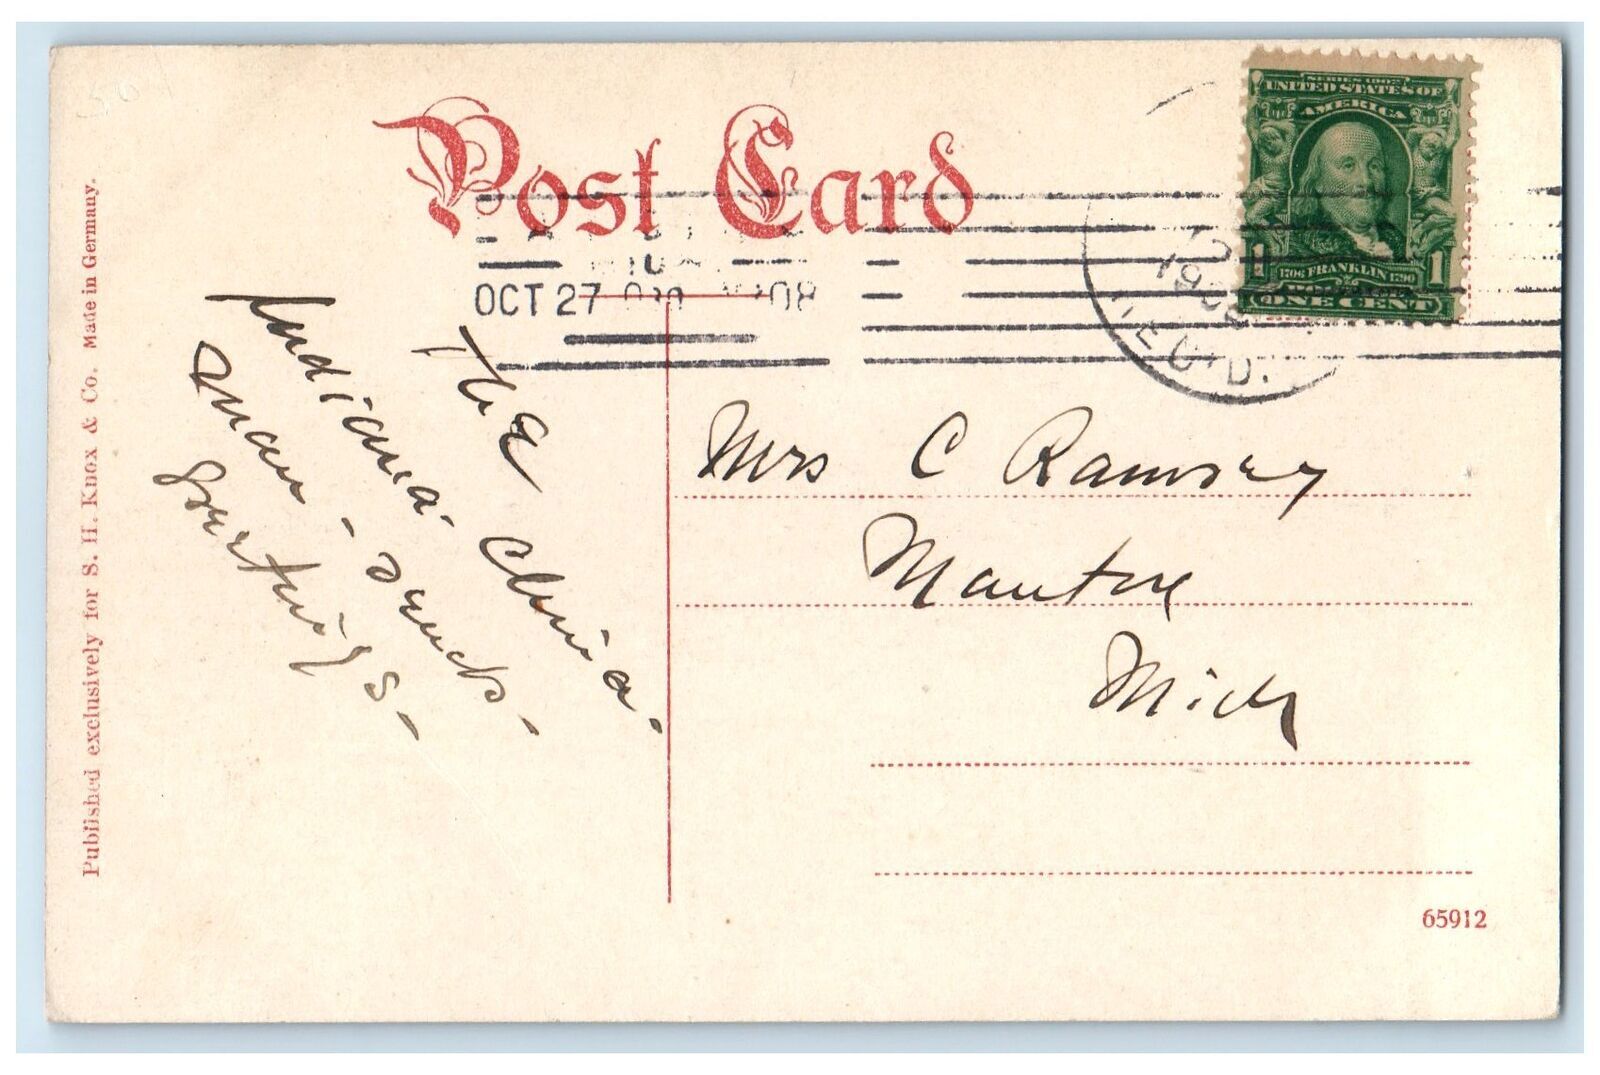 Post Card
SERIES 1902
UNITED STATES OF
AMERICA
1 1706 FRANKLIN 1790 1
ONE CENT
OCT 27
1908
REC'D.
The
Indiana China
man - sends -
greetings -
Mrs C Ramsey
Manton
Mich
Published exclusively for S. H. Knox & Co. Made in Germany.
65912